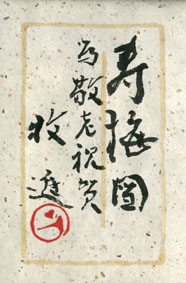 寿梅图
为敬老祝贺
牧遥